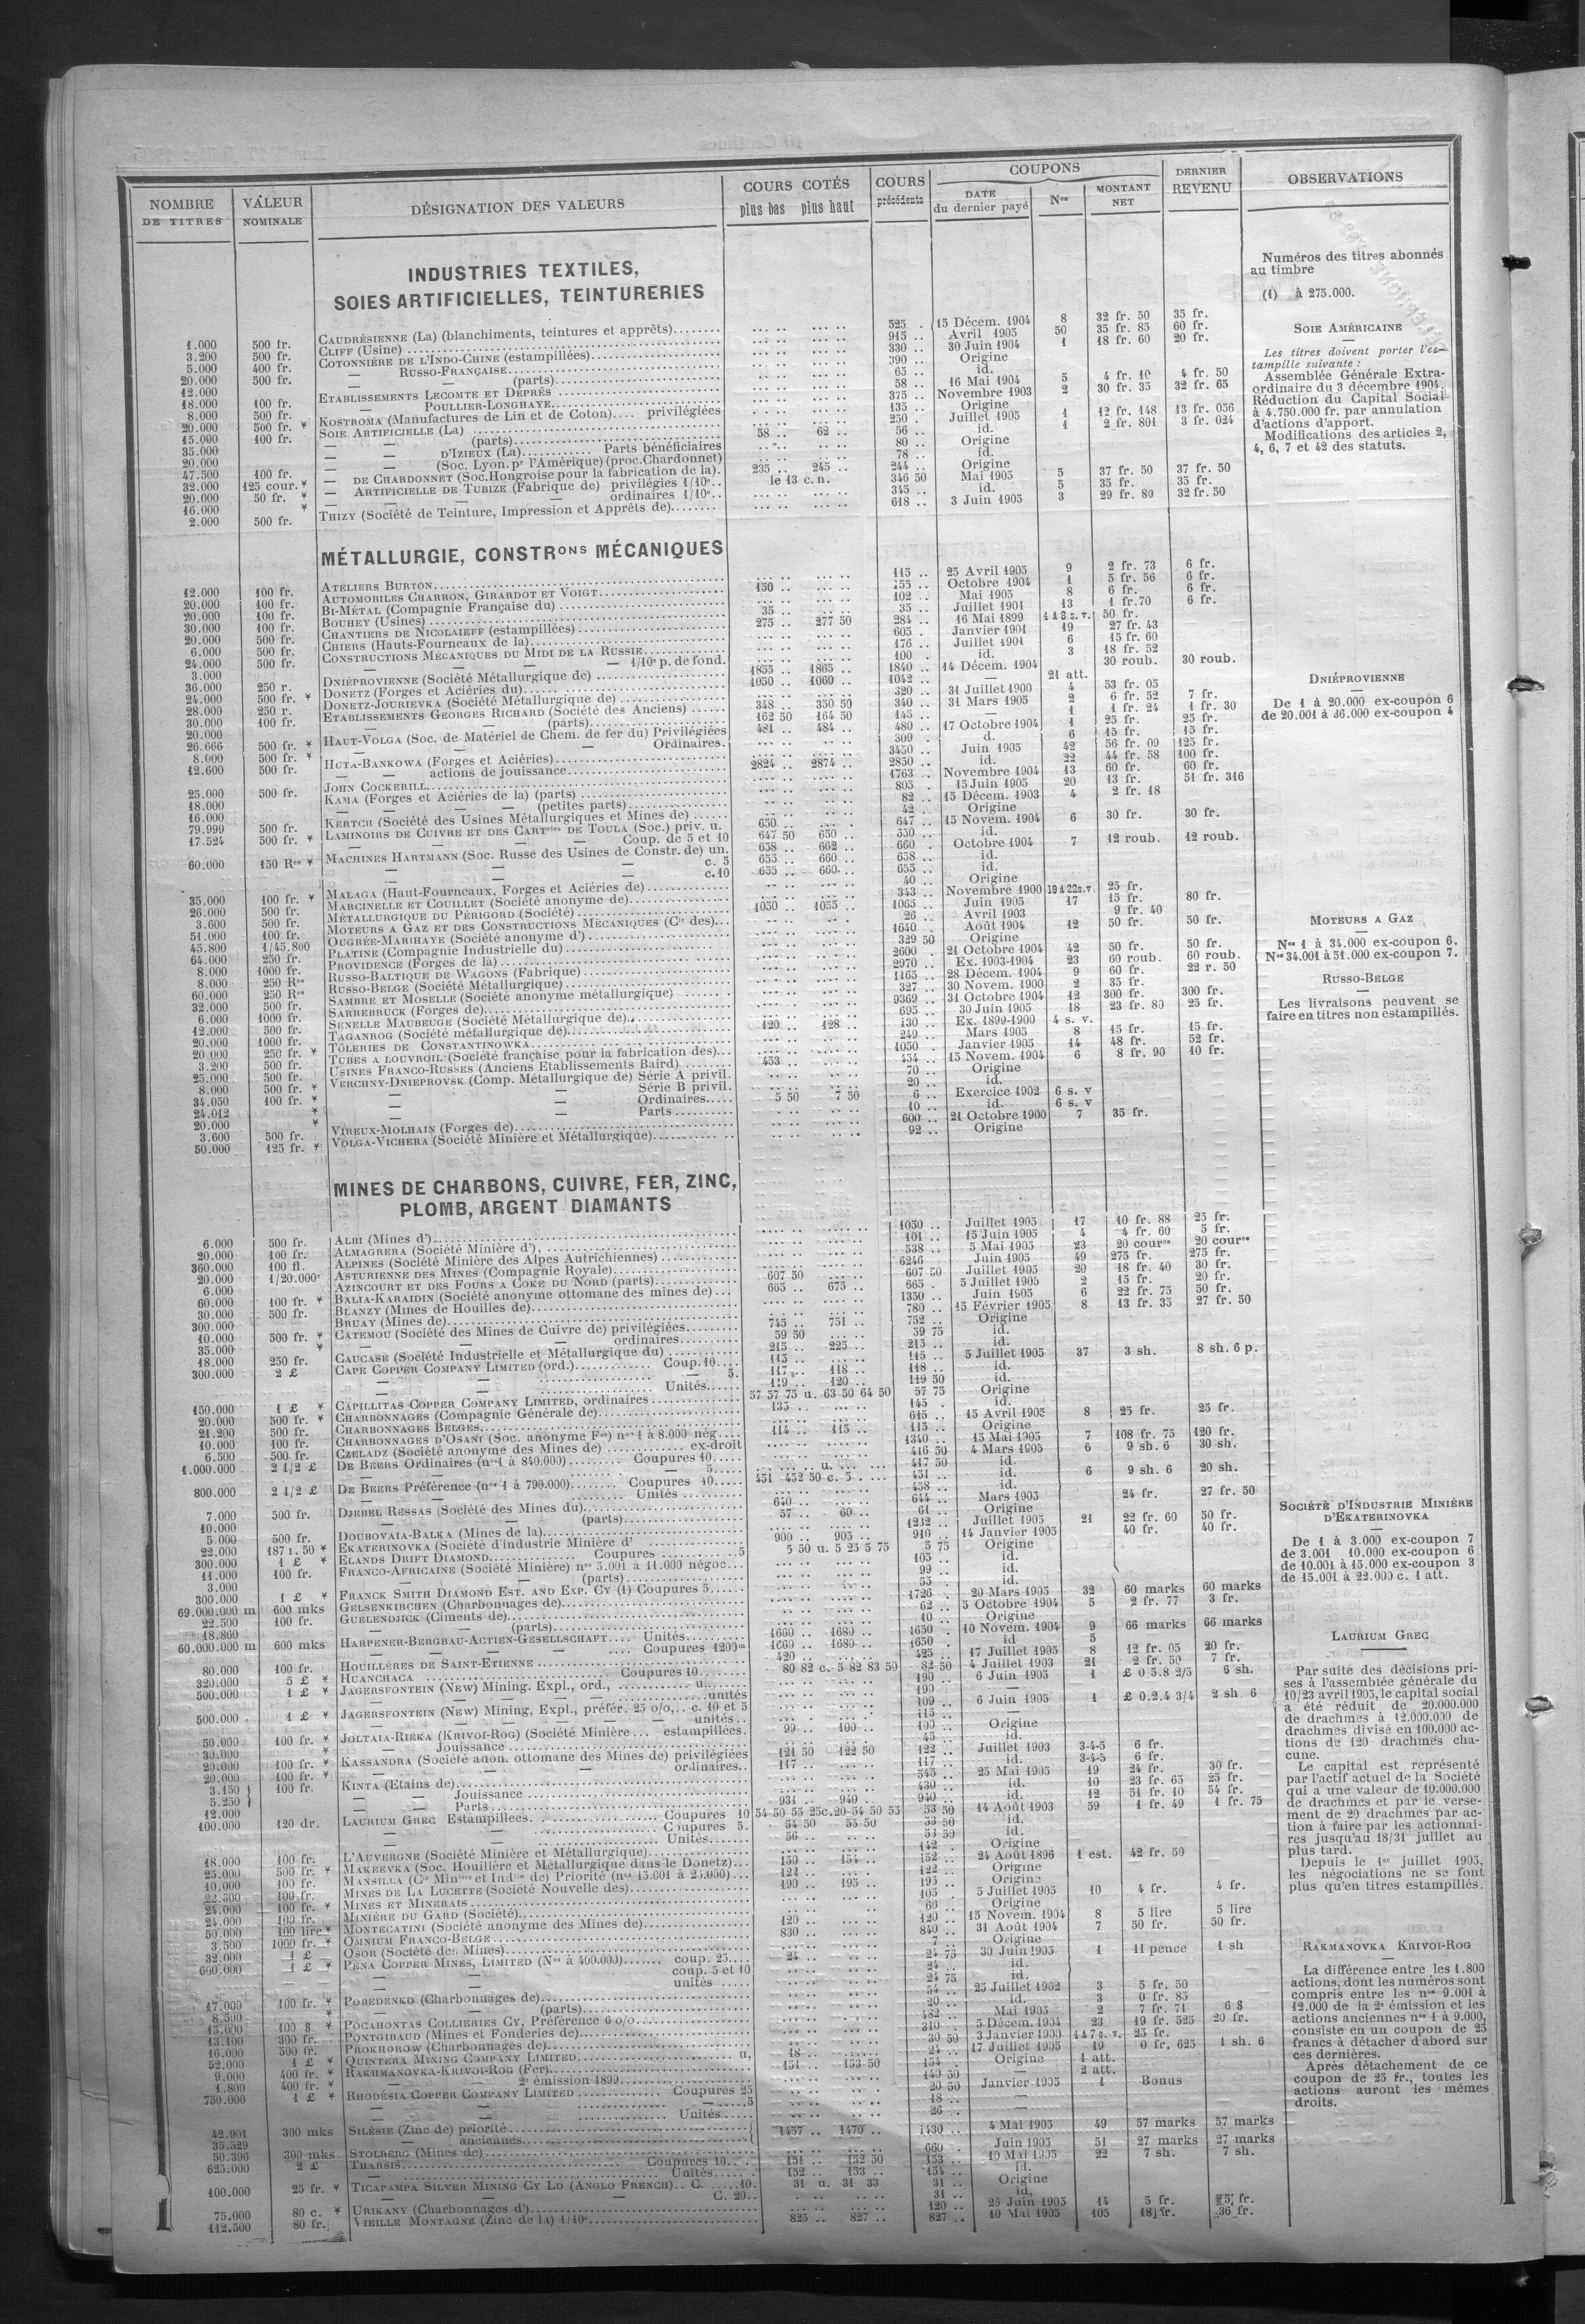 NOMBRE DE TITRES | VALEUR NOMINALE | DÉSIGNATION DES VALEURS | COURS COTÉS plus bas plus haut | COURS précédents | COUPONS DATE du dernier payé | Nos | MONTANT NET | DERNIER REVENU | OBSERVATIONS
INDUSTRIES TEXTILES,
SOIES ARTIFICIELLES, TEINTURERIES
1.000 500 fr. CAUDRÉSIENNE (La) (blanchiments, teintures et apprêts) 525 . 15 Décem. 1904 8 32 fr. 50 35 fr.
3.200 500 fr. CLIFF (Usine) 915 .. Avril 1905 50 35 fr. 85 60 fr.
5.000 400 fr. COTONNIÈRE DE L'INDO-CHINE (estampillées) 330 .. 30 Juin 1904 1 18 fr. 60 20 fr.
20.000 500 fr. — RUSSO-FRANÇAISE 390 .. Origine
12.000 — — (parts) 65 .. id.
18.000 100 fr. ETABLISSEMENTS LECOMTE ET DEPRÈS 58 .. 16 Mai 1904 5 4 fr. 10 4 fr. 50
8.000 500 fr. — POULLIER-LONGHAYE 375 .. Novembre 1903 2 30 fr. 35 32 fr. 65
20.000 500 fr. * KOSTROMA (Manufactures de Lin et de Coton) privilégiées 135 .. Origine
15.000 100 fr. SOIE ARTIFICIELLE (La) 250 . Juillet 1905 1 12 fr. 148 13 fr. 056
35.000 — — (parts) 58 .. 62 .. 56 .. id. 1 2 fr. 801 3 fr. 024
20.000 — — D'IZIEUX (La) Parts bénéficiaires 80 .. Origine
47.500 100 fr. — — (Soc. Lyon. pr l'Amérique) (proc. Chardonnet) 78 .. id.
32.000 125 cour. * — DE CHARDONNET (Soc. Hongroise pour la fabrication de la). 235 .. 245 .. 244 .. Origine
20.000 50 fr. * — ARTIFICIELLE DE TUBIZE (Fabrique de) privilégies 1/10e le 13 c. n. 346 50 Mai 1905 5 37 fr. 50 37 fr. 50
16.000 * — — ordinaires 1/10e 345 .. id. 5 35 fr. 35 fr.
2.000 500 fr. THIZY (Société de Teinture, Impression et Apprêts de) 618 .. 3 Juin 1905 3 29 fr. 80 32 fr. 50
MÉTALLURGIE, CONSTRons MÉCANIQUES
12.000 100 fr. ATELIERS BURTON 115 .. 25 Avril 1905 9 2 fr. 73 6 fr.
20.000 100 fr. AUTOMOBILES CHARRON, GIRARDOT ET VOIGT 150 .. 155 .. Octobre 1904 1 5 fr. 56 6 fr.
20.000 100 fr. BI-MÉTAL (Compagnie Française du) 102 .. Mai 1905 8 6 fr. 6 fr.
30.000 100 fr. BOUHEY (Usines) 35 .. 35 .. Juillet 1901 13 1 fr. 70 6 fr.
20.000 500 fr. CHANTIERS DE NICOLAIEFF (estampillées) 275 .. 277 50 284 .. 16 Mai 1899 1 à 8 s. v. 50 fr.
6.000 500 fr. CHIERS (Hauts-Fourneaux de la) 605 . Janvier 1901 19 27 fr. 43
24.000 500 fr. CONSTRUCTIONS MÉCANIQUES DU MIDI DE LA RUSSIE 176 .. Juillet 1901 6 15 fr. 60
3.000 — — — 1/10e p. de fond. 100 . id. 3 18 fr. 52
36.000 250 r. DNIÉPROVIENNE (Société Métallurgique de) 1855 .. 1865 .. 1840 .. 14 Décem. 1904 30 roub. 30 roub.
24.000 500 fr. * DONETZ (Forges et Aciéries du) 1050 .. 1060 .. 1042 .. — 21 att.
28.000 250 r. DONETZ-JOURIEVKA (Société Métallurgique de) 320 .. 31 Juillet 1900 4 53 fr. 05
30.000 100 fr. ETABLISSEMENTS GEORGES RICHARD (Société des Anciens) 348 .. 350 50 340 .. 31 Mars 1905 2 6 fr. 52 7 fr.
20.000 — (parts) 162 50 164 50 145 .. — 1 1 fr. 24 1 fr. 30
26.666 500 fr. * HAUT-VOLGA (Soc. de Matériel de Chem. de fer du) Privilégiées 481 .. 484 .. 480 .. 17 Octobre 1904 1 25 fr. 25 fr.
8.000 500 fr. * — — Ordinaires. 309 .. d. 6 15 fr. 15 fr.
12.600 500 fr. HUTA-BANKOWA (Forges et Aciéries) 3450 .. Juin 1905 42 56 fr. 09 125 fr.
— — actions de jouissance 2824 .. 2874 .. 2850 .. id. 22 44 fr. 58 100 fr.
25.000 500 fr. JOHN COCKERILL 1763 .. Novembre 1904 13 60 fr. 60 fr.
18.000 KAMA (Forges et Aciéries de la) (parts) 805 . 15 Juin 1905 20 13 fr. 51 fr. 316
16.000 — — — (petites parts) 82 .. 15 Décem. 1903 4 2 fr. 18
79.999 500 fr. KERTCH (Société des Usines Métallurgiques et Mines de) 42 .. Origine
17.524 500 fr. * LAMINOIRS DE CUIVRE ET DES CARTries DE TOULA (Soc.) priv. u. 650 .. 647 .. 15 Novem. 1904 6 30 fr. 30 fr.
— — — — Coup. de 5 et 10 647 50 650 .. 550 .. id.
60.000 150 Res * MACHINES HARTMANN (Soc. Russe des Usines de Constr. de) un. 658 .. 662 .. 660 . Octobre 1904 7 12 roub. 12 roub.
— — — c. 5 655 .. 660 .. 658 .. id.
— — — c. 10 655 .. 660 .. 655 .. id.
35.000 100 fr. * MALAGA (Haut-Fourneaux, Forges et Aciéries de) 40 .. Origine
26.000 500 fr. MARCINELLE ET COUILLET (Société anonyme de) 343 .. Novembre 1900 19 à 22 s. v. 25 fr.
3.600 500 fr. MÉTALLURGIQUE DU PÉRIGORD (Société) 1050 .. 1055 .. 1065 .. Juin 1905 17 15 fr. 80 fr.
51.000 100 fr. MOTEURS A GAZ ET DES CONSTRUCTIONS MÉCANIQUES (Cie des) 26 .. Avril 1903 9 fr. 40
45.800 1/45.800 OUGRÉE-MARIHAYE (Société anonyme d') 1640 . Août 1904 12 50 fr. 50 fr.
64.000 250 fr. PLATINE (Compagnie Industrielle du) 329 50 Origine
8.000 1000 fr. PROVIDENCE (Forges de la) 2600 . 21 Octobre 1904 42 50 fr. 50 fr.
8.000 250 Res RUSSO-BALTIQUE DE WAGONS (Fabrique) 2970 .. Ex. 1903-1904 23 60 roub. 60 roub.
60.000 250 Res RUSSO-BELGE (Société Métallurgique) 1165 .. 28 Décem. 1904 9 60 fr. 22 r. 50
32.000 500 fr. SAMBRE ET MOSELLE (Société anonyme métallurgique) 327 .. 30 Novem. 1900 2 35 fr.
6.000 1000 fr. SARREBRUCK (Forges de) 9369 .. 31 Octobre 1904 12 300 fr. 300 fr.
12.000 500 fr. SENELLE MAUBEUGE (Société Métallurgique de) 695 .. 30 Juin 1905 18 23 fr. 80 25 fr.
20.000 1000 fr. TAGANROG (Société métallurgique de) 120 .. 128 .. 130 .. Ex. 1899-1900 4 s. v.
20 000 250 fr. * TÔLERIES DE CONSTANTINOWKA 249 .. Mars 1905 8 15 fr. 15 fr.
3.200 500 fr. TUBES A LOUVROIL (Société française pour la fabrication des) 1050 .. Janvier 1905 14 48 fr. 52 fr.
25.000 500 fr. USINES FRANCO-RUSSES (Anciens Etablissements Baird) 453 .. 454 .. 15 Novem. 1904 6 8 fr. 90 10 fr.
8.000 500 fr. * VERCHNY-DNIEPROVSK (Comp. Métallurgique de) Série A privil. 70 .. Origine
34.050 100 fr. * — — Série B privil. 20 .. id.
24.012 * — — Ordinaires 5 50 7 50 6 .. Exercice 1902 6 s. v
20.000 * — — Parts 10 .. id. 6 s. v
3.600 500 fr. VIREUX-MOLHAIN (Forges de) 600 .. 21 Octobre 1900 7 35 fr.
50.000 125 fr. * VOLGA-VICHERA (Société Minière et Métallurgique) 92 .. Origine
MINES DE CHARBONS, CUIVRE, FER, ZINC,
PLOMB, ARGENT DIAMANTS
6.000 500 fr. ALBI (Mines d') 1050 .. Juillet 1905 17 10 fr. 88 25 fr.
20.000 100 fr. ALMAGRERA (Société Minière d') 101 .. 15 Juin 1905 4 4 fr. 60 5 fr.
360.000 100 fl. ALPINES (Société Minière des Alpes Autrichiennes) 538 .. 5 Mai 1905 23 20 cours 20 cours
20.000 1/20.000e ASTURIENNE DES MINES (Compagnie Royale) 6246 Juin 1905 49 275 fr. 275 fr.
6.000 AZINCOURT ET DES FOURS A COKE DU NORD (parts) 607 50 607 50 Juillet 1905 20 18 fr. 40 30 fr.
60.000 100 fr. * BALIA-KARAIDIN (Société anonyme ottomane des mines de) 665 .. 675 .. 665 . 5 Juillet 1905 2 15 fr. 20 fr.
30.000 500 fr. BLANZY (Mines de Houilles de) 1350 .. Juin 1905 6 22 fr. 75 50 fr.
300.000 BRUAY (Mines de) 780 .. 15 Février 1905 8 13 fr. 35 27 fr. 50
10.000 500 fr. * CATEMOU (Société des Mines de Cuivre de) privilégiées 745 .. 751 .. 752 .. Origine
35.000 * — — ordinaires 59 50 59 75 id.
18.000 250 fr. CAUCASE (Société Industrielle et Métallurgique du) 215 .. 225 .. 215 .. id.
300.000 2 £ CAPE COPPER COMPANY LIMITED (ord.) Coup. 10 115 .. 115 .. 5 Juillet 1905 37 3 sh. 8 sh. 6 p.
— — — 5. 117 .. 118 .. 118 .. id.
— — Unités 119 .. 120 .. 119 50 id.
150.000 1 £ * CAPILLITAS COPPER COMPANY LIMITED, ordinaires 57 57 75 u. 63 50 64 50 57 75 Origine
20.000 500 fr. * CHARBONNAGES (Compagnie Générale de) 135 .. 145 . id.
21.200 500 fr. CHARBONNAGES BELGES 615 .. 15 Avril 1905 8 25 fr. 25 fr.
10.000 100 fr. CHARBONNAGES D'OSANI (Soc. anonyme Fse) nos 1 à 8.000 nég 114 .. 115 .. 115 .. Origine
6.500 500 fr. CZELADZ (Société anonyme des Mines de) ex-droit 1340 .. 15 Mai 1905 7 108 fr. 75 120 fr.
1.000.000 2 1/2 £ DE BEERS Ordinaires (nos 1 à 840.000) Coupures 10 416 50 4 Mars 1905 6 9 sh. 6 30 sh.
— — 5 u. 417 50 id.
800.000 2 1/2 £ DE BEERS Préférence (nos 1 à 790.000) Coupures 10 451 452 50 c. 5 451 .. id. 6 9 sh. 6 20 sh.
— — Unités 458 .. id.
7.000 500 fr. DJEBEL RESSAS (Société des Mines du) 640 .. 644 .. Mars 1905 24 fr. 27 fr. 50
10.000 — — (parts) 57 .. 60 .. 61 .. Origine
5.000 500 fr. DOUBOVAIA-BALKA (Mines de la) 1232 .. Juillet 1905 21 22 fr. 60 50 fr.
22.000 187 r. 50 * EKATERINOVKA (Société d'industrie Minière d' 900 .. 905 .. 910 .. 14 Janvier 1905 40 fr. 40 fr.
300.000 1 £ * ELANDS DRIFT DIAMOND Coupures 5 5 50 u. 5 25 5 75 5 75 Origine
11.000 100 fr. FRANCO-AFRICAINE (Société Minière) nos 5.001 à 11.000 négoc 105 .. id.
3.000 — — (parts) 99 .. id.
300.000 1 £ * FRANCK SMITH DIAMOND EST. AND EXP. CY (1) Coupures 5 55 .. id.
69.000.000 m 600 mks GELSENKIRCHEN (Charbonnages de) 1726 .. 20 Mars 1905 32 60 marks 60 marks
22.500 100 fr. GUELENDJICK (Ciments de) 62 .. 5 Octobre 1904 5 2 fr. 77 3 fr.
18.860 — — (parts) 10 .. Origine
60.000.000 m 600 mks HARPENER-BERGBAU-ACTIEN-GESELLSCHAFT Unités 1660 .. 1680 .. 1650 . 10 Novem. 1904 9 66 marks 66 marks
— — — Coupures 1200m 1660 .. 1680 .. 1650 .. id 5
80.000 100 fr. HOUILLÈRES DE SAINT-ETIENNE 420 .. 425 .. 17 Juillet 1905 8 12 fr. 05 20 fr.
320.000 5 £ * HUANCHACA Coupures 10 80 82 c. 5 82 83 50 82 50 4 Juillet 1903 21 2 fr. 50 7 fr.
500.000 1 £ * JAGERSFONTEIN (NEW) Mining. Expl., ord., u. 190 .. 6 Juin 1905 1 £ 0 5.8 2/5 6 sh.
— — — unités 190 —
500.000 1 £ * JAGERSFONTEIN (NEW) Mining, Expl., préfér. 25 o/o, c. 10 et 5 109 .. 6 Juin 1905 1 £ 0.2.4 3/4 2 sh. 6
— — — unités 115 .. —
50.000 100 fr. * JOLTAIA-RIEKA (KRIVOI-ROG) (Société Minière estampillées. 99 .. 100 .. 100 .. Origine
30.000 * — Jouissance 45 .. id.
20.000 100 fr. * KASSANDRA (Société anon. ottomane des Mines de) privilégiées 121 50 122 50 122 .. Juillet 1903 3-4-5 6 fr.
20.000 100 fr. * — — ordinaires 117 .. 117 .. id. 3-4-5 6 fr.
3.150 100 fr. KINTA (Etains de) 545 .. 25 Mai 1905 19 24 fr. 30 fr.
5.250 — — Jouissance 430 .. id. 10 23 fr. 65 25 fr.
12.000 — — Parts 931 .. 940 .. 940 .. id. 12 51 fr. 10 54 fr.
100.000 120 dr. LAURIUM GREC Estampillees Coupures 10 54 50 55 25c.20 54 50 55 53 50 14 Août 1903 59 1 fr. 49 1 fr. 75
— — Coupures 5. 54 50 55 50 53 50 id.
— — Unités 56 .. 53 50 id.
18.000 100 fr. L'AUVERGNE (Société Minière et Métallurgique) 142 .. Origine
25.000 500 fr. * MAKEEVKA (Soc. Houillère et Métallurgique dans le Donetz) 150 .. 154 .. 152 .. 24 Août 1896 1 est. 42 fr. 50
10.000 100 fr. MANSILLA (Cie Minière et Indlle de) Priorité (nos 15.601 à 25.000) 124 .. 122 .. Origine
22.500 100 fr. MINES DE LA LUCETTE (Société Nouvelle des) 190 .. 195 .. 195 .. Origine
24.000 100 fr. * MINES ET MINERAIS 105 . 5 Juillet 1905 10 4 fr. 4 fr.
24.000 100 fr. MINIÈRE DU GARD (Société) 60 .. Origine
50.000 100 lire * MONTECATINI (Société anonyme des Mines de) 120 .. 120 .. 15 Novem. 1904 8 5 lire 5 lire
3.500 1000 fr. * OMNIUM FRANCO-BELGE 830 .. 840 .. 31 Août 1904 7 50 fr. 50 fr.
32.000 1 £ OSOR (Société des Mines) 7 .. Origine
600.000 1 £ * PENA COPPER MINES, LIMITED (Nos à 400.000) coup. 25 24 .. 24 75 30 Juin 1905 1 11 pence 1 sh
— — coup. 5 et 10 24 .. id.
— — unités 24 75 id.
17.000 100 fr. * POBEDENKO (Charbonnages de) 54 .. 25 Juillet 1902 3 5 fr. 50
8.500 * — — (parts) 20 .. id. 3 0 fr. 85
15.000 100 $ * POCAHONTAS COLLIERIES CY, Préférence 6 o/o 482 .. Mai 1905 2 7 fr. 71 6 $
13.100 300 fr. PONTGIBAUD (Mines et Fonderies de) 310 .. 5 Décem. 1904 23 19 fr. 525 20 fr.
16.000 500 fr. PROKHOROW (Charbonnages de) 30 50 3 Janvier 1900 4 à 7 s. v. 25 fr.
52.000 1 £ * QUINTERA MINING COMPANY LIMITED u, 18 .. 24 .. 17 Juillet 1905 19 0 fr. 625 1 sh. 6
9.000 400 fr. * RAKHMANOVKA-KRIVOI-ROG (Fer) 151 .. 153 50 154 .. Origine 1 att.
1.800 400 fr. * — 2e émission 1899 140 50 2 att.
750.000 1 £ * RHODÉSIA COPPER COMPANY LIMITED Coupures 25 20 50 Janvier 1905 1 Bonus
— — 5 18 ..
— — Unités 26 .. —
42.901 300 mks SILÉSIE (Zinc de) priorité 1457 .. 1470 .. 1430 .. 4 Mai 1905 49 57 marks 57 marks
35.529 — anciennes
50.396 300 mks STOLBERG (Mines de) 660 . Juin 1905 51 27 marks 27 marks
625.000 2 £ THARSIS Coupures 10 151 .. 152 50 153 .. 10 Mai 1905 22 7 sh. 7 sh.
— Unités 152 .. 153 .. 154 .. id.
100.000 25 fr. * TICAPAMPA SILVER MINING CY LD (ANGLO FRENCH) C. 10. 31 u. 31 33 31 .. Origine
— — — C. 20 31 .. id.
75.000 80 c. * URIKANY (Charbonnages d') 120 .. 26 Juin 1905 14 5 fr. 5 fr.
112.500 80 fr. VIEILLE MONTAGNE (Zinc de la) 1/10e 825 .. 827 .. 827 .. 10 Mai 1905 105 18 fr. 36 fr.
Numéros des titres abonnés
au timbre
(1) à 275.000.
SOIE AMÉRICAINE
Les titres doivent porter l'es-
tampille suivante :
Assemblée Générale Extra-
ordinaire du 3 décembre 1904.
Réduction du Capital Social
à 4.750.000 fr. par annulation
d'actions d'apport.
Modifications des articles 2,
4, 6, 7 et 42 des statuts.
DNIÉPROVIENNE
De 1 à 20.000 ex-coupon 6
de 20.001 à 36.000 ex-coupon 4
MOTEURS A GAZ
Nos 1 à 34.000 ex-coupon 6.
Nos 34.001 à 51.000 ex-coupon 7.
RUSSO-BELGE
Les livraisons peuvent se
faire en titres non estampillés.
SOCIÉTÉ D'INDUSTRIE MINIÈRE
D'EKATERINOVKA
De 1 à 3.000 ex-coupon 7
de 3.001 10.000 ex-coupon 6
de 10.001 à 15.000 ex-coupon 3
de 15.001 à 22.000 c. 1 att.
LAURIUM GREC
Par suite des décisions pri-
ses à l'assemblée générale du
10/23 avril 1905, le capital social
a été réduit de 20.000.000
de drachmes à 12.000.000 de
drachmes divisé en 100.000 ac-
tions de 120 drachmes cha-
cune.
Le capital est représenté
par l'actif actuel de la Société
qui a une valeur de 10.000.000
de drachmes et par le verse-
ment de 20 drachmes par ac-
tion à faire par les actionnai-
res jusqu'au 18/31 juillet au
plus tard.
Depuis le 1er juillet 1905,
les négociations ne se font
plus qu'en titres estampillés.
RAKMANOVKA KRIVOI-ROG
La différence entre les 1.800
actions, dont les numéros sont
compris entre les nos 9.001 à
12.000 de la 2e émission et les
actions anciennes nos 1 à 9.000,
consiste en un coupon de 25
francs à détacher d'abord sur
ces dernières.
Après détachement de ce
coupon de 25 fr., toutes les
actions auront les mêmes
droits.